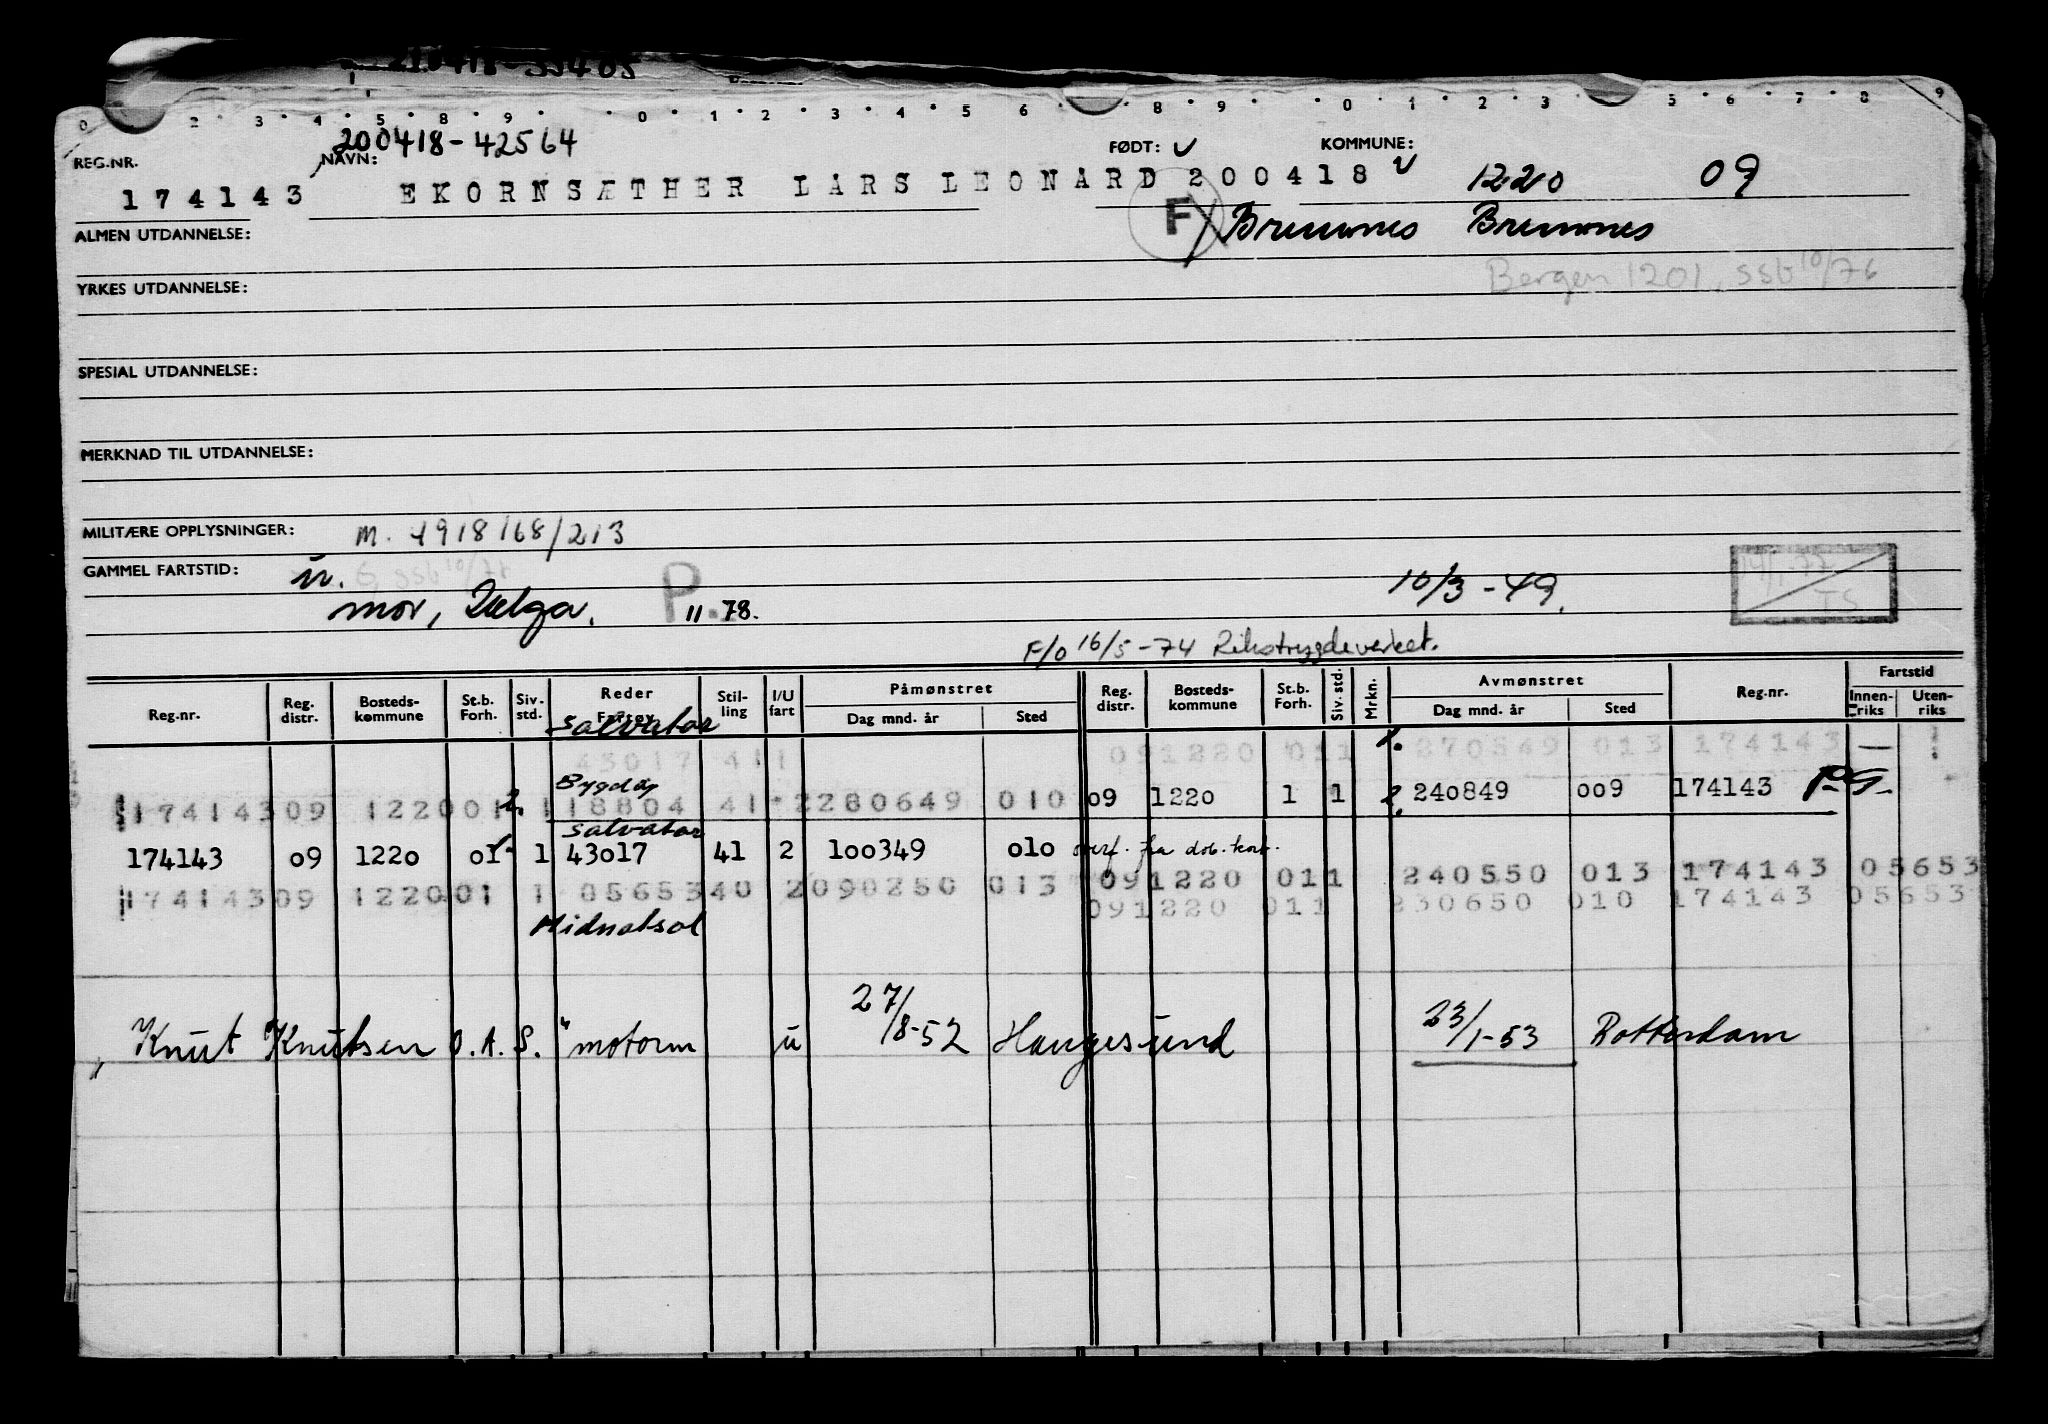 210418-55405
0 2 3 4 5 8 9 0 1 2 3 4 5 6 8 9 0 1 2 3 5 6 7 8 9
200418-42564
REG.NR. NAVN: FØDT: KOMMUNE:
174143 EKORNSÆTHER LARS LEONARD 200418 1220 09
F
ALMEN UTDANNELSE: Bremnes Bremnes
Bergen 1201, ssb 10/76
YRKES UTDANNELSE:
SPESIAL UTDANNELSE:
MERKNAD TIL UTDANNELSE:
MILITÆRE OPPLYSNINGER: M. 1918/68/213
GAMMEL FARTSTID: ssb 10/76
mor, Helga. P. 11-78. 10/3-49.
F/o 16/5-74 Rikstrygdeverket.
Reg.nr. Reg. distr. Bosteds-kommune St.b. Forh. Siv. std. Reder Fartøy Stil-ling I/U fart Påmønstret Dag mnd. år Sted Reg. distr. Bosteds-kommune St.b. Forh. Siv. std. Mrkn. Avmønstret Dag mnd. år Sted Reg.nr. Fartstid Innen-riks Uten-riks
Salvator
43017 411 091220 011 1. 270549 013 174143 —
Bygdøy
17414309 122001 2. 1 18804 41 2280649 010 09 1220 1 1 2. 240849 009 174143 P.G.
Salvator
174143 09 1220 01 1 43017 41 2 100349 010 overf. fra dob. kort.
091220 011 240550 013 174143 05653
17414309 122001 1 0565340 2090250 013
091220 011 230650 010 174143 05653
Midnatsol
Knut Knutsen O.A.S. " motorm u 27/8-52 Haugesund 23/1-53 Rotterdam